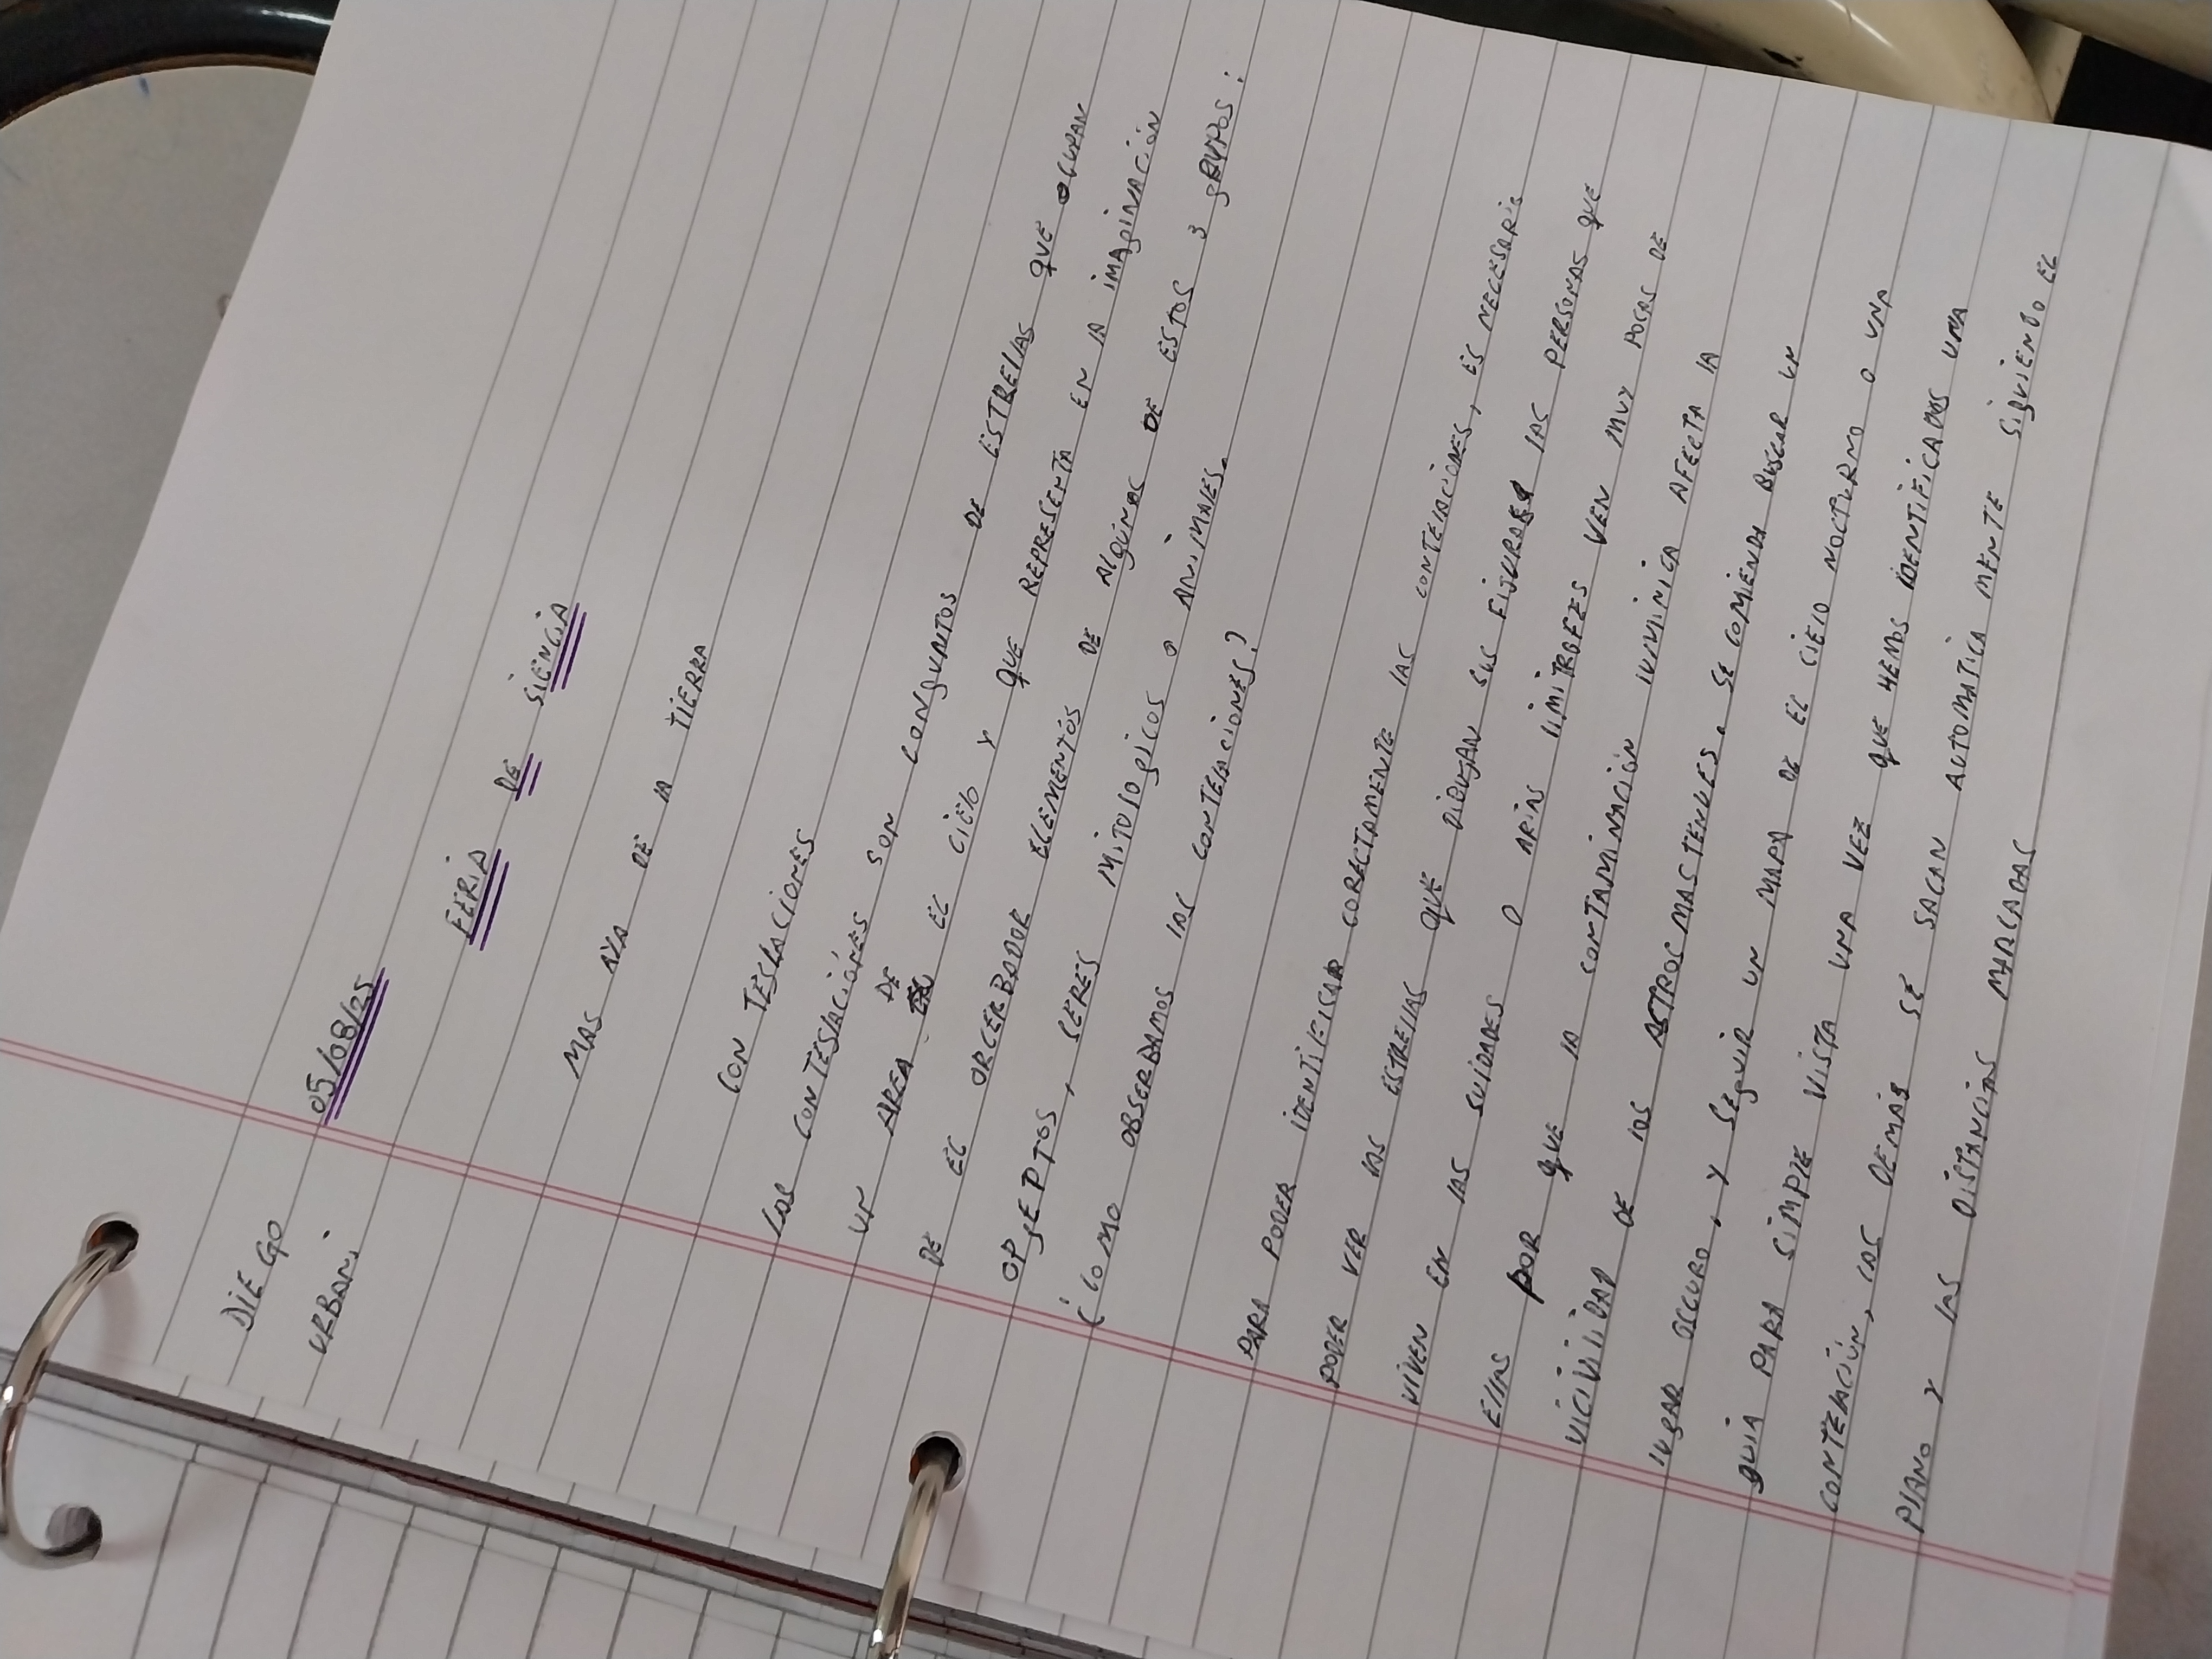 DIEGO
URBANI
05/08/25
FERIA DE SIENCIA
MAS AYA DE IA TIERRA
CON TESLACIONES
LAS CONTESLACIONES SON CONGUNTOS DE ESTRELIAS QUE OCUPAN
UN AREA DE EL CIELO Y QUE REPRESENTA EN IA IMAGINACIÓN
DE EL ORCERBADOR ELEMENTOS DE ALGUNAS DE ESTOS 3 GRUPOS:
OPJEPTOS, SERES MITOLOGICOS O ANIMALES.
¿COMO OBSERBAMOS IAS CONTEIACIONES?
PARA PODER IDENTIFICAR CORECTAMENTE IAS CONTEIACIONES, ES NECESARIO
PODER VER IAS ESTRELIAS QUE DIBUJAN SUS FIGURAS IAS PERSONAS QUE
VIVEN EN IAS SUIDADES O ARIAS LIMITROFES VEN MUY POCAS DE
ELIAS POR QUE IA CONTAMINACIÓN IUMINICA AFECTA IA
VICIVILIDAD DE IOS ASTROS MAS TENUES. SE COMIENDA BUSCAR UN
IUGAR OSCURO, Y SEGUIR UN MAPA DE EL CIEIO NOCTURNO O UNA
GUIA PARA SIMPIE VISTA UNA VEZ QUE HEMOS IDENTIFICADOS UNA
CONTEIACIÓN, IAS DEMAS SE SACAN AUTOMATICA MENTE SIGUIENDO EL
PIANO Y IAS DISTANCIAS MARCADAS